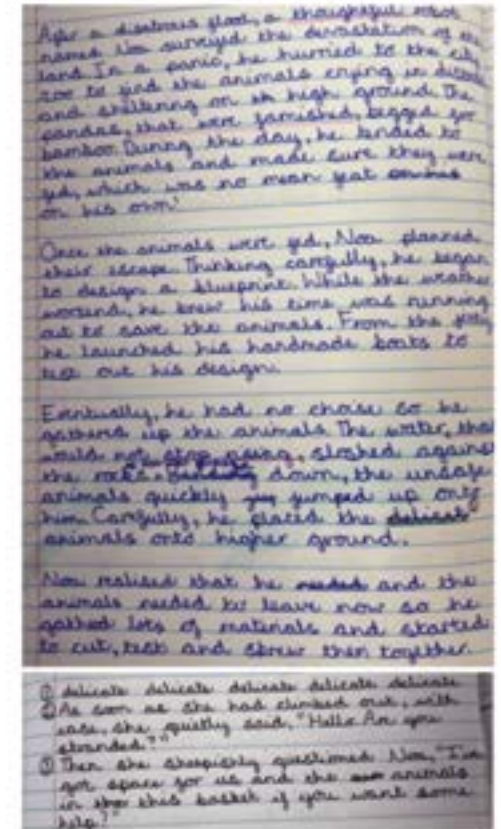 After a disastrous flood, a thoughtful robot
named Noa surveyed the devastation of the
land. In a panic, he hurried to the city
zoo to find the animals crying in
and sheltering on high ground. The
pandas, that were famished, begged for
bamboo. During the day, he tended to
the animals and made sure they were
fed, which was no mean feat
on his own!
Once the animals were fed, Noa planned
their escape. Thinking carefully, he began
to design a blueprint. While the weather
worsend, he knew his time was running
out to save the animals. From the
he launched his handmade boats to
test out his design.
Eventually, he had no choise so he
gathers up the animals. The water, that
would not stop rising, sloshed against
the rocks. down, the unsafe
animals quickly jumped up onto
him. Carefully, he placed the delicate
animals onto higher ground.
Noa realised that he needed and the
animals needed to leave now so he
gathed lots of materials and started
to cut, test and screw then together.
① delicate delicate delicate delicate delicate
② As soon as she had climbed out, with
ease, she quietly said, "Hello. Are you
stranded?"
③ Then she sheepishly questioned Noa, "I've
got space for us and the animals
in this basket if you want some
help?"